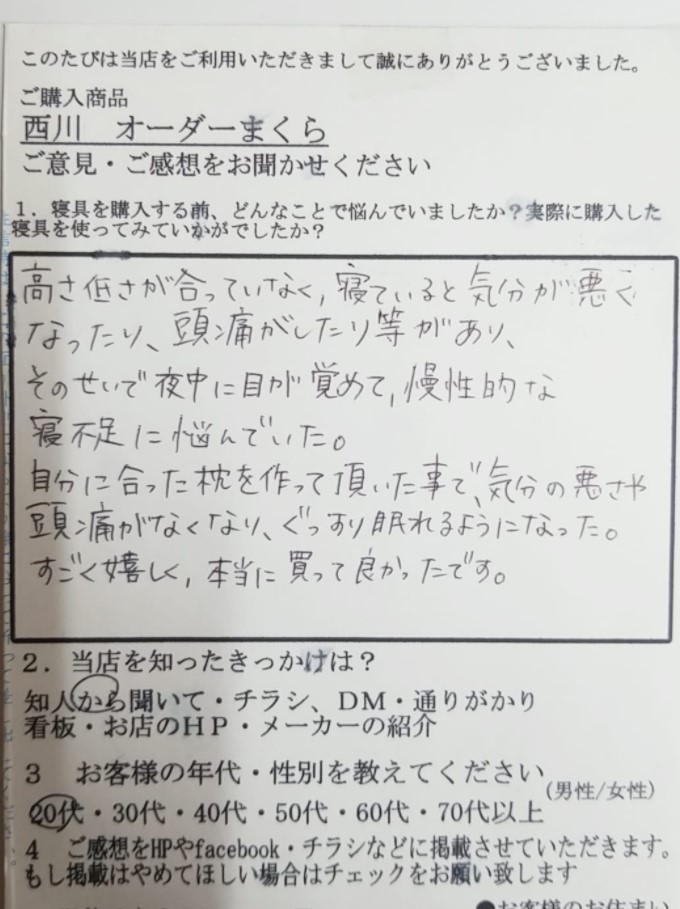 このたびは当店をご利用いただきまして誠にありがとうございました。
ご購入商品
西川　オーダーまくら
ご意見・ご感想をお聞かせください
1．寝具を購入する前、どんなことで悩んでいましたか？実際に購入した
寝具を使ってみていかがでしたか？
高さ低さが合っていなく，寝ていると気分が悪く
なったり、頭痛がしたり等があり、
そのせいで夜中に目が覚めて，慢性的な
寝不足に悩んでいた。
自分に合った枕を作って頂いた事で、気分の悪さや
頭痛がなくなり、ぐっすり眠れるようになった。
すごく嬉しく，本当に買って良かったです。
2．当店を知ったきっかけは？
知人から聞いて・チラシ、DM・通りがかり
看板・お店のHP・メーカーの紹介
3　お客様の年代・性別を教えてください（男性/女性）
20代・30代・40代・50代・60代・70代以上
4　ご感想をHPやfacebook・チラシなどに掲載させていただきます。
もし掲載はやめてほしい場合はチェックをお願い致します
●お客様のお住まい